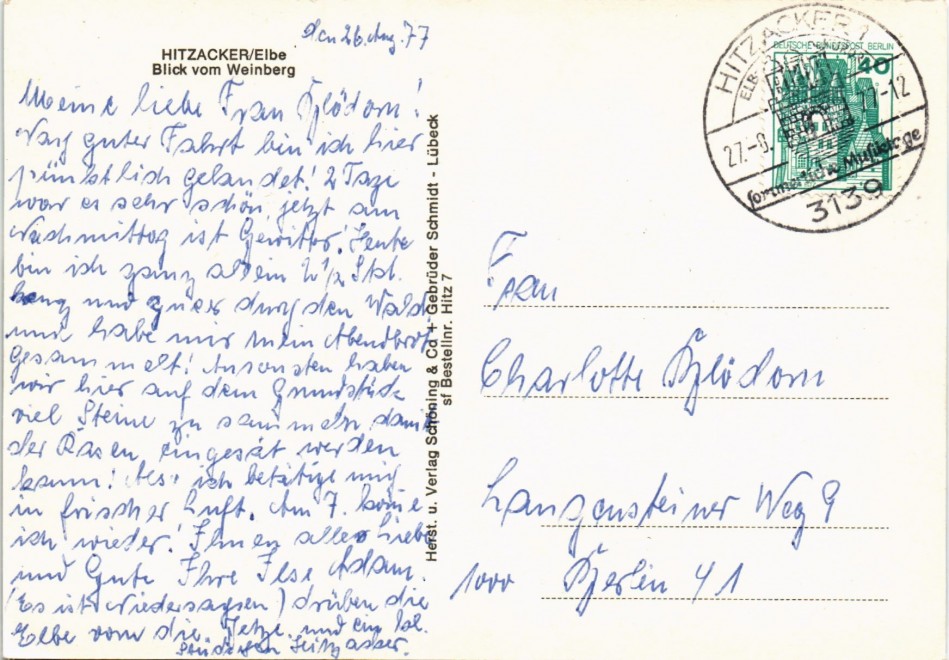 den 26. Aug. 77
HITZACKER/Elbe
Blick vom Weinberg
Meine liebe Frau Klödorn!
Nach guter Fahrt bin ich hier
pünktlich gelandet! 2 Tage
war es sehr schön, jetzt am
Nachmittag ist Gewitter! Heute
bin ich ganz allein 2 1/2 Std.
und quer durch den Wald
und habe mir mein Abendbrot
gesammelt! Ansonsten haben
wir hier auf dem Grundstück
viel Steine zu sammeln, damit
der Rasen eingesät werden
kann! Also ich betätige mich
in frischer Luft. Am 7. komme
ich wieder! Ihnen alles Liebe
und Gute Ihre Ilse Adam.
(Es ist Niedersachsen) drüben die
Elbe vorn die Jetze und ein
Hitzacker.
Herst. u. Verlag Schöning & Co + Gebrüder Schmidt - Lübeck
sf Bestellnr. Hitz 7
HITZACKER 1
DEUTSCHE BUNDESPOST BERLIN
40
27.-8.
-12
Sommerliche Musiktage
3139
Frau
Charlotte Klödorn
Langensteiner Weg 9
1000 Berlin 41